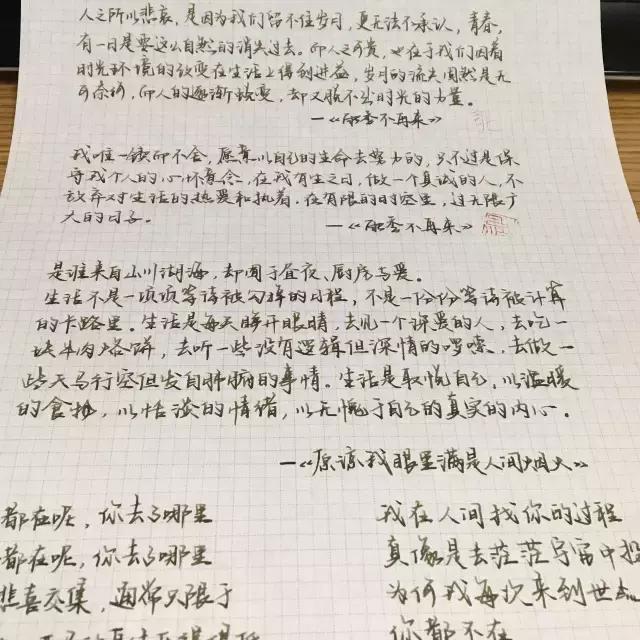 人之所以悲哀,是因为我们留不住岁月,更无法不承认,青春,
有一日是要这么自然的消失过去。而人之可贵,也在于我们因着
时光环境的改变在生活上得到进益,岁月的流失固然是无
可奈何,而人的逐渐蜕变,却又脱不出时光的力量。
—《雨季不再来》
我唯一锲而不舍,愿意以自己的生命去努力的,只不过是保
守我个人的心怀意念,在我有生之日,做一个真诚的人,不
放弃对生活的热爱和执着,在有限的时空里,过无限广
大的日子。
—《雨季不再来》
是谁来自山川湖海,却囿于昼夜、厨房与爱。
生活不是一项项等待被勾掉的日程,不是一份份等待被计算
的卡路里。生活是每天睁开眼睛,去见一个深爱的人,去吃一
块牛肉烙饼,去听一些没有逻辑但深情的啰嗦,去做一
些天马行空但发自肺腑的事情。生活是取悦自己,以温暖
的食物,以恬淡的情绪,以无愧于自己的真实的内心。
—《原谅我眼里满是人间烟火》
都在呢,你去了哪里
都在呢,你去了哪里
悲喜交集,通常只限于
我在人间找你的过程
真像是去茫茫宇宙中投
为何我每次来到世
你都不在